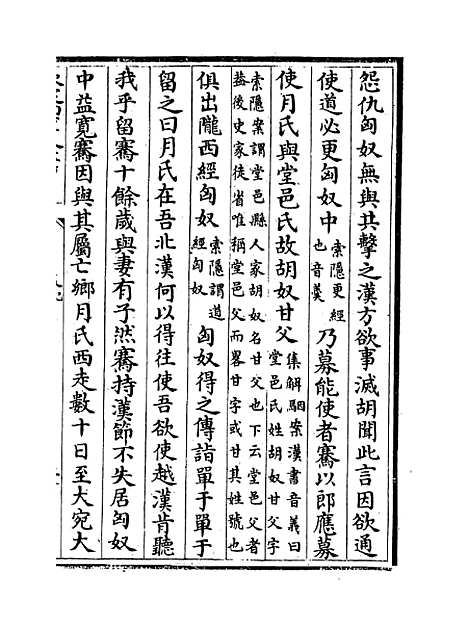 怨仇匈奴無與共擊之漢方欲事滅胡聞此言因欲通
使道必更匈奴中索隱更經也音羹乃募能使者騫以郎應募
使月氏與堂邑氏故胡奴甘父集解駰案漢書音義曰堂邑氏姓胡奴甘父字
索隱案謂堂邑縣人家胡奴名甘父也下云堂邑父者
葢後史家徒省唯稱堂邑父而畧甘字或甘其姓號也
俱出隴西經匈奴索隱謂道經匈奴匈奴得之傳詣單于單于
留之曰月氏在吾北漢何以得往使吾欲使越漢肯聽
我乎留騫十餘歲與妻有子然騫持漢節不失居匈奴
中益寛騫因與其屬亡鄉月氏西走數十日至大宛大